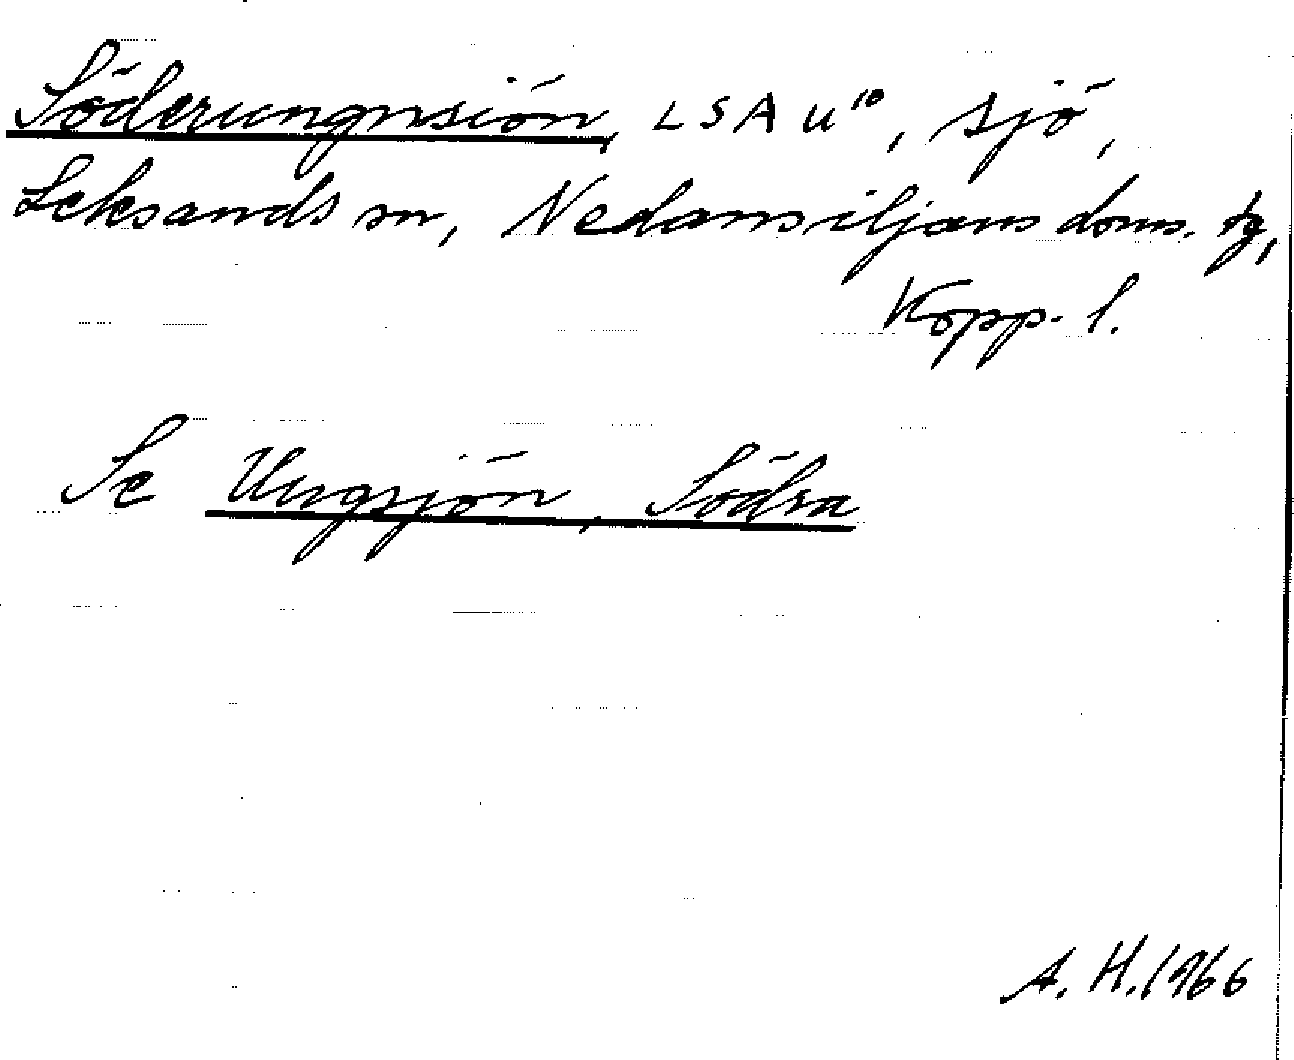 Söderungnsiön, LSA u¹⁰, sjö,
Leksands sn, Nedansiljans doms. tg,
Kopp. l.
Se Ungsjön, Södra
A. H. 1966